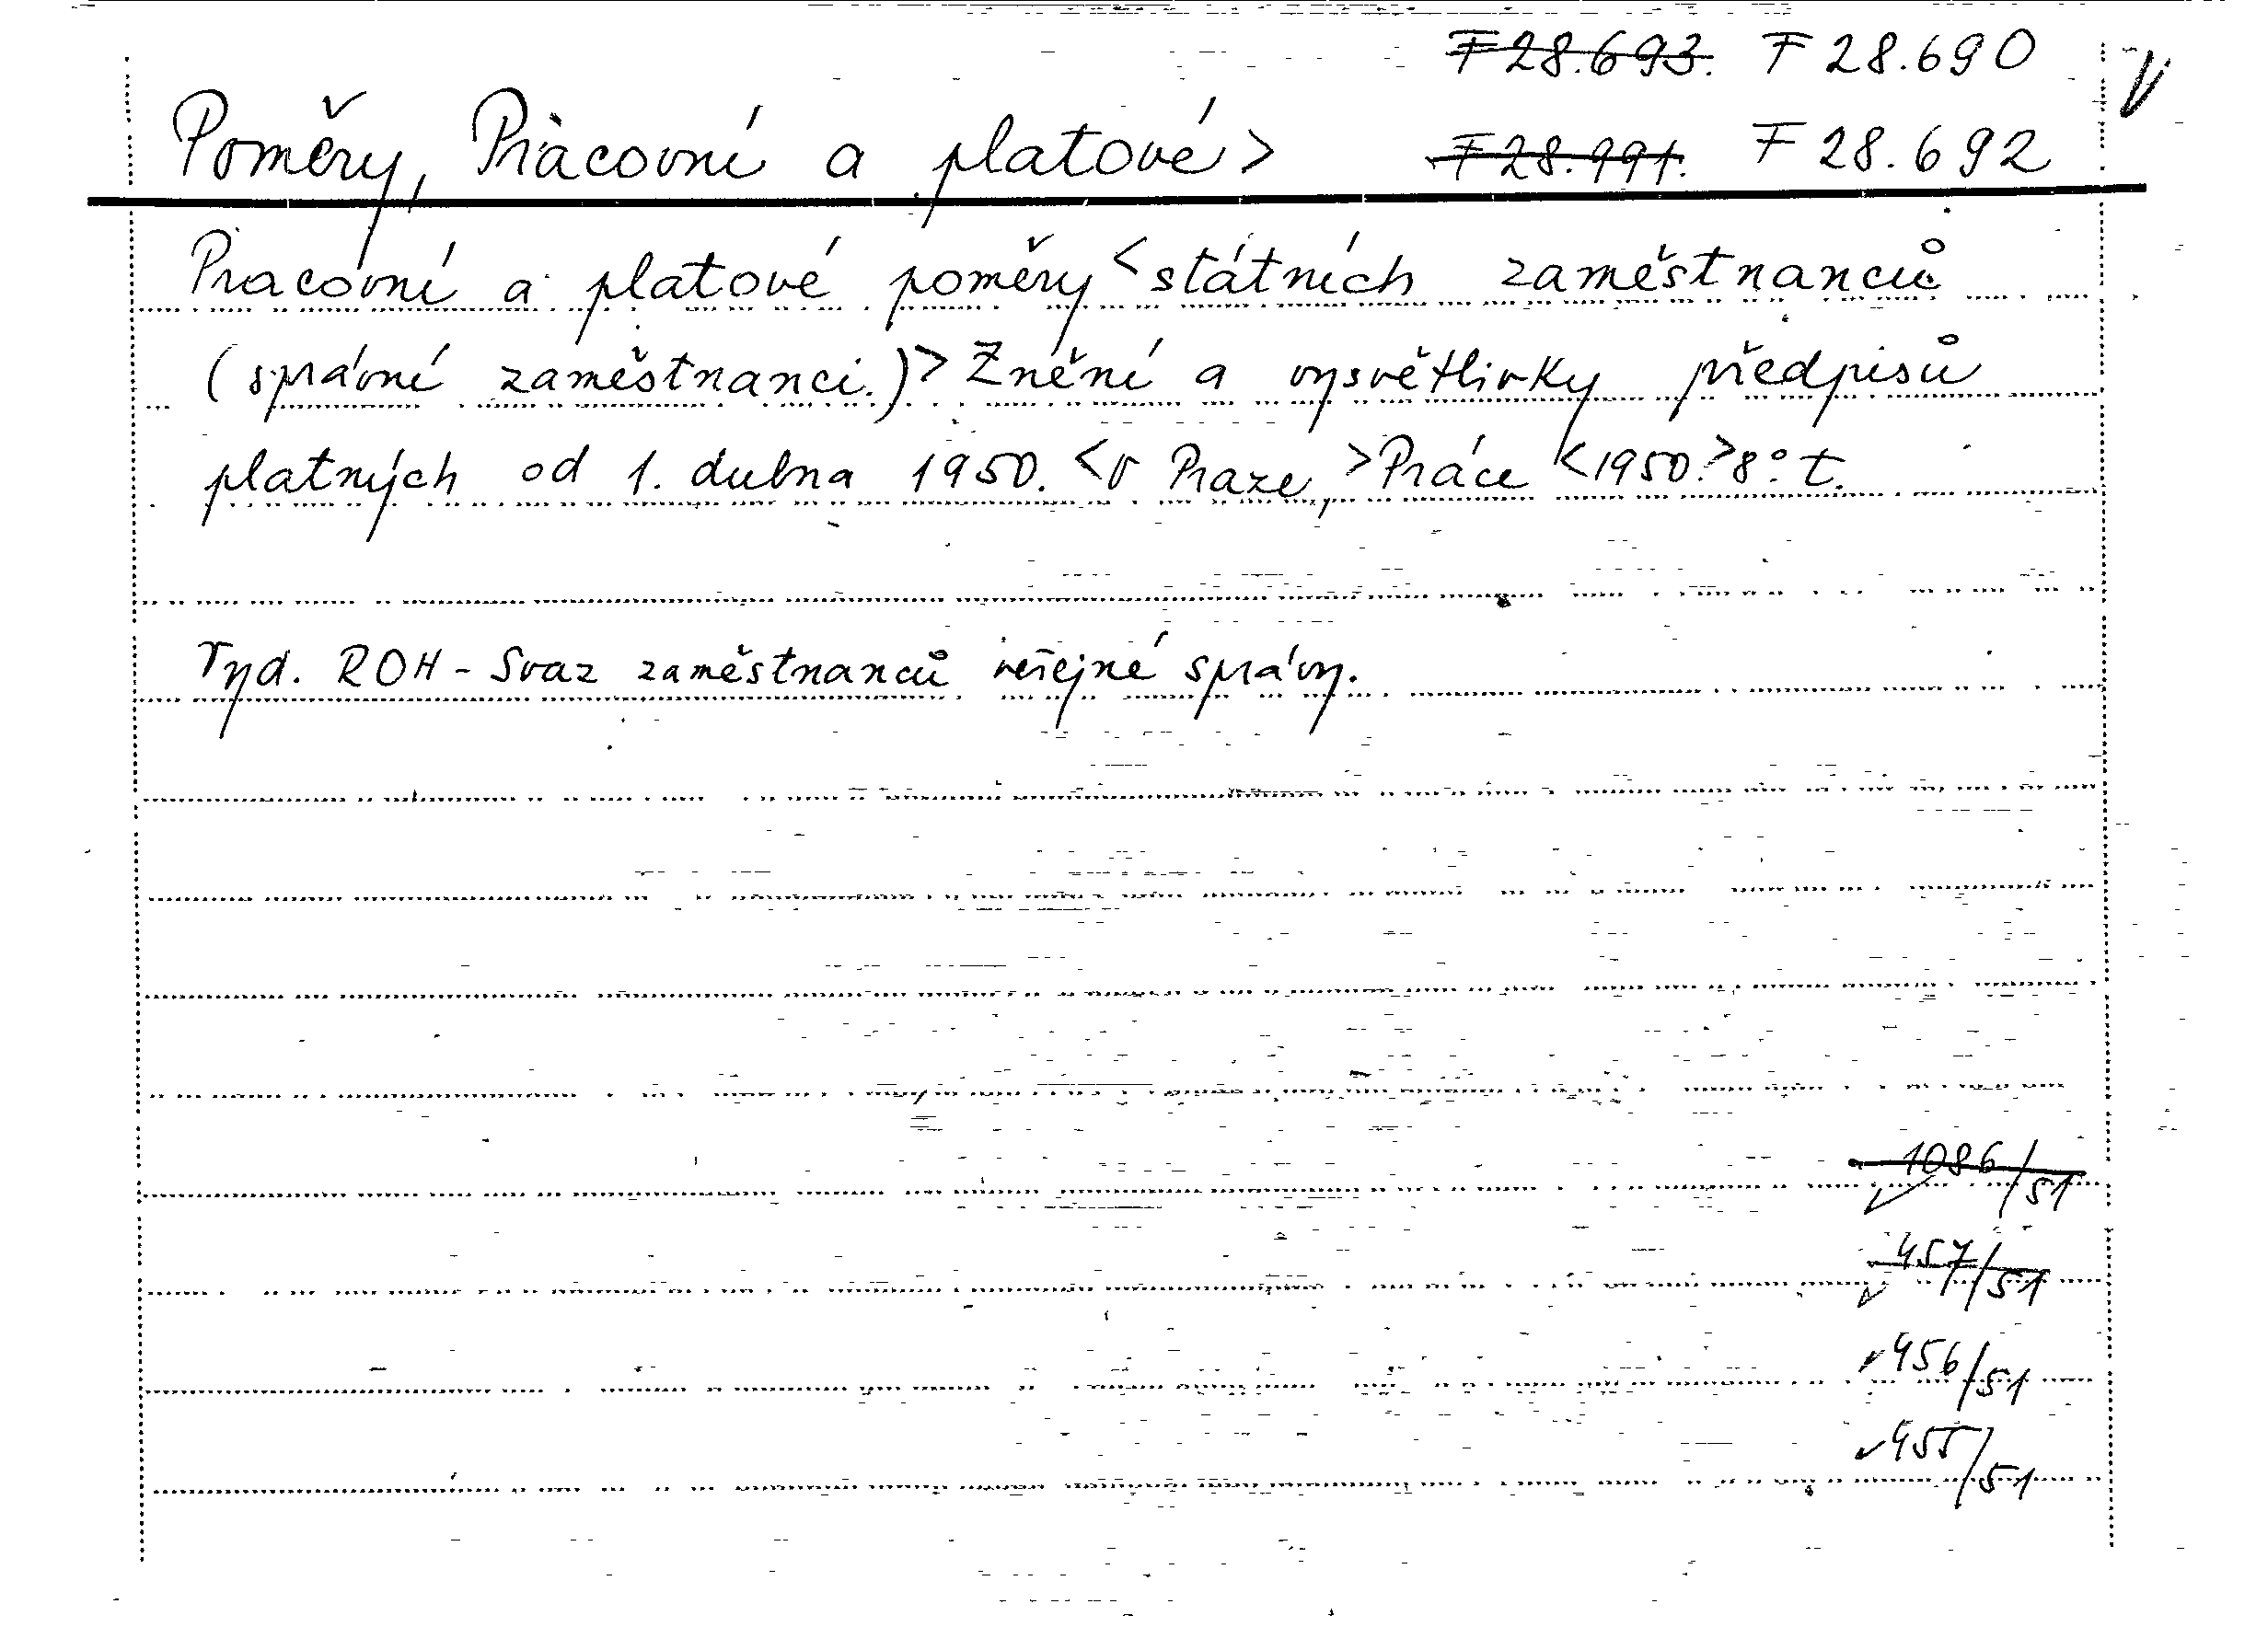 F 28.693. F 28.690 V
Poměry, Pracovní a platové > F 28.991. F 28.692
Pracovní a platové poměry < státních zaměstnanců
(správní zaměstnanci.) > Znění a vysvětlivky předpisů
platných od 1. dubna 1950. < V Praze, > Práce < 1950. > 8° t.
Vyd. ROH - Svaz zaměstnanců veřejné správy.
1086/51
457/51
456/51
455/51